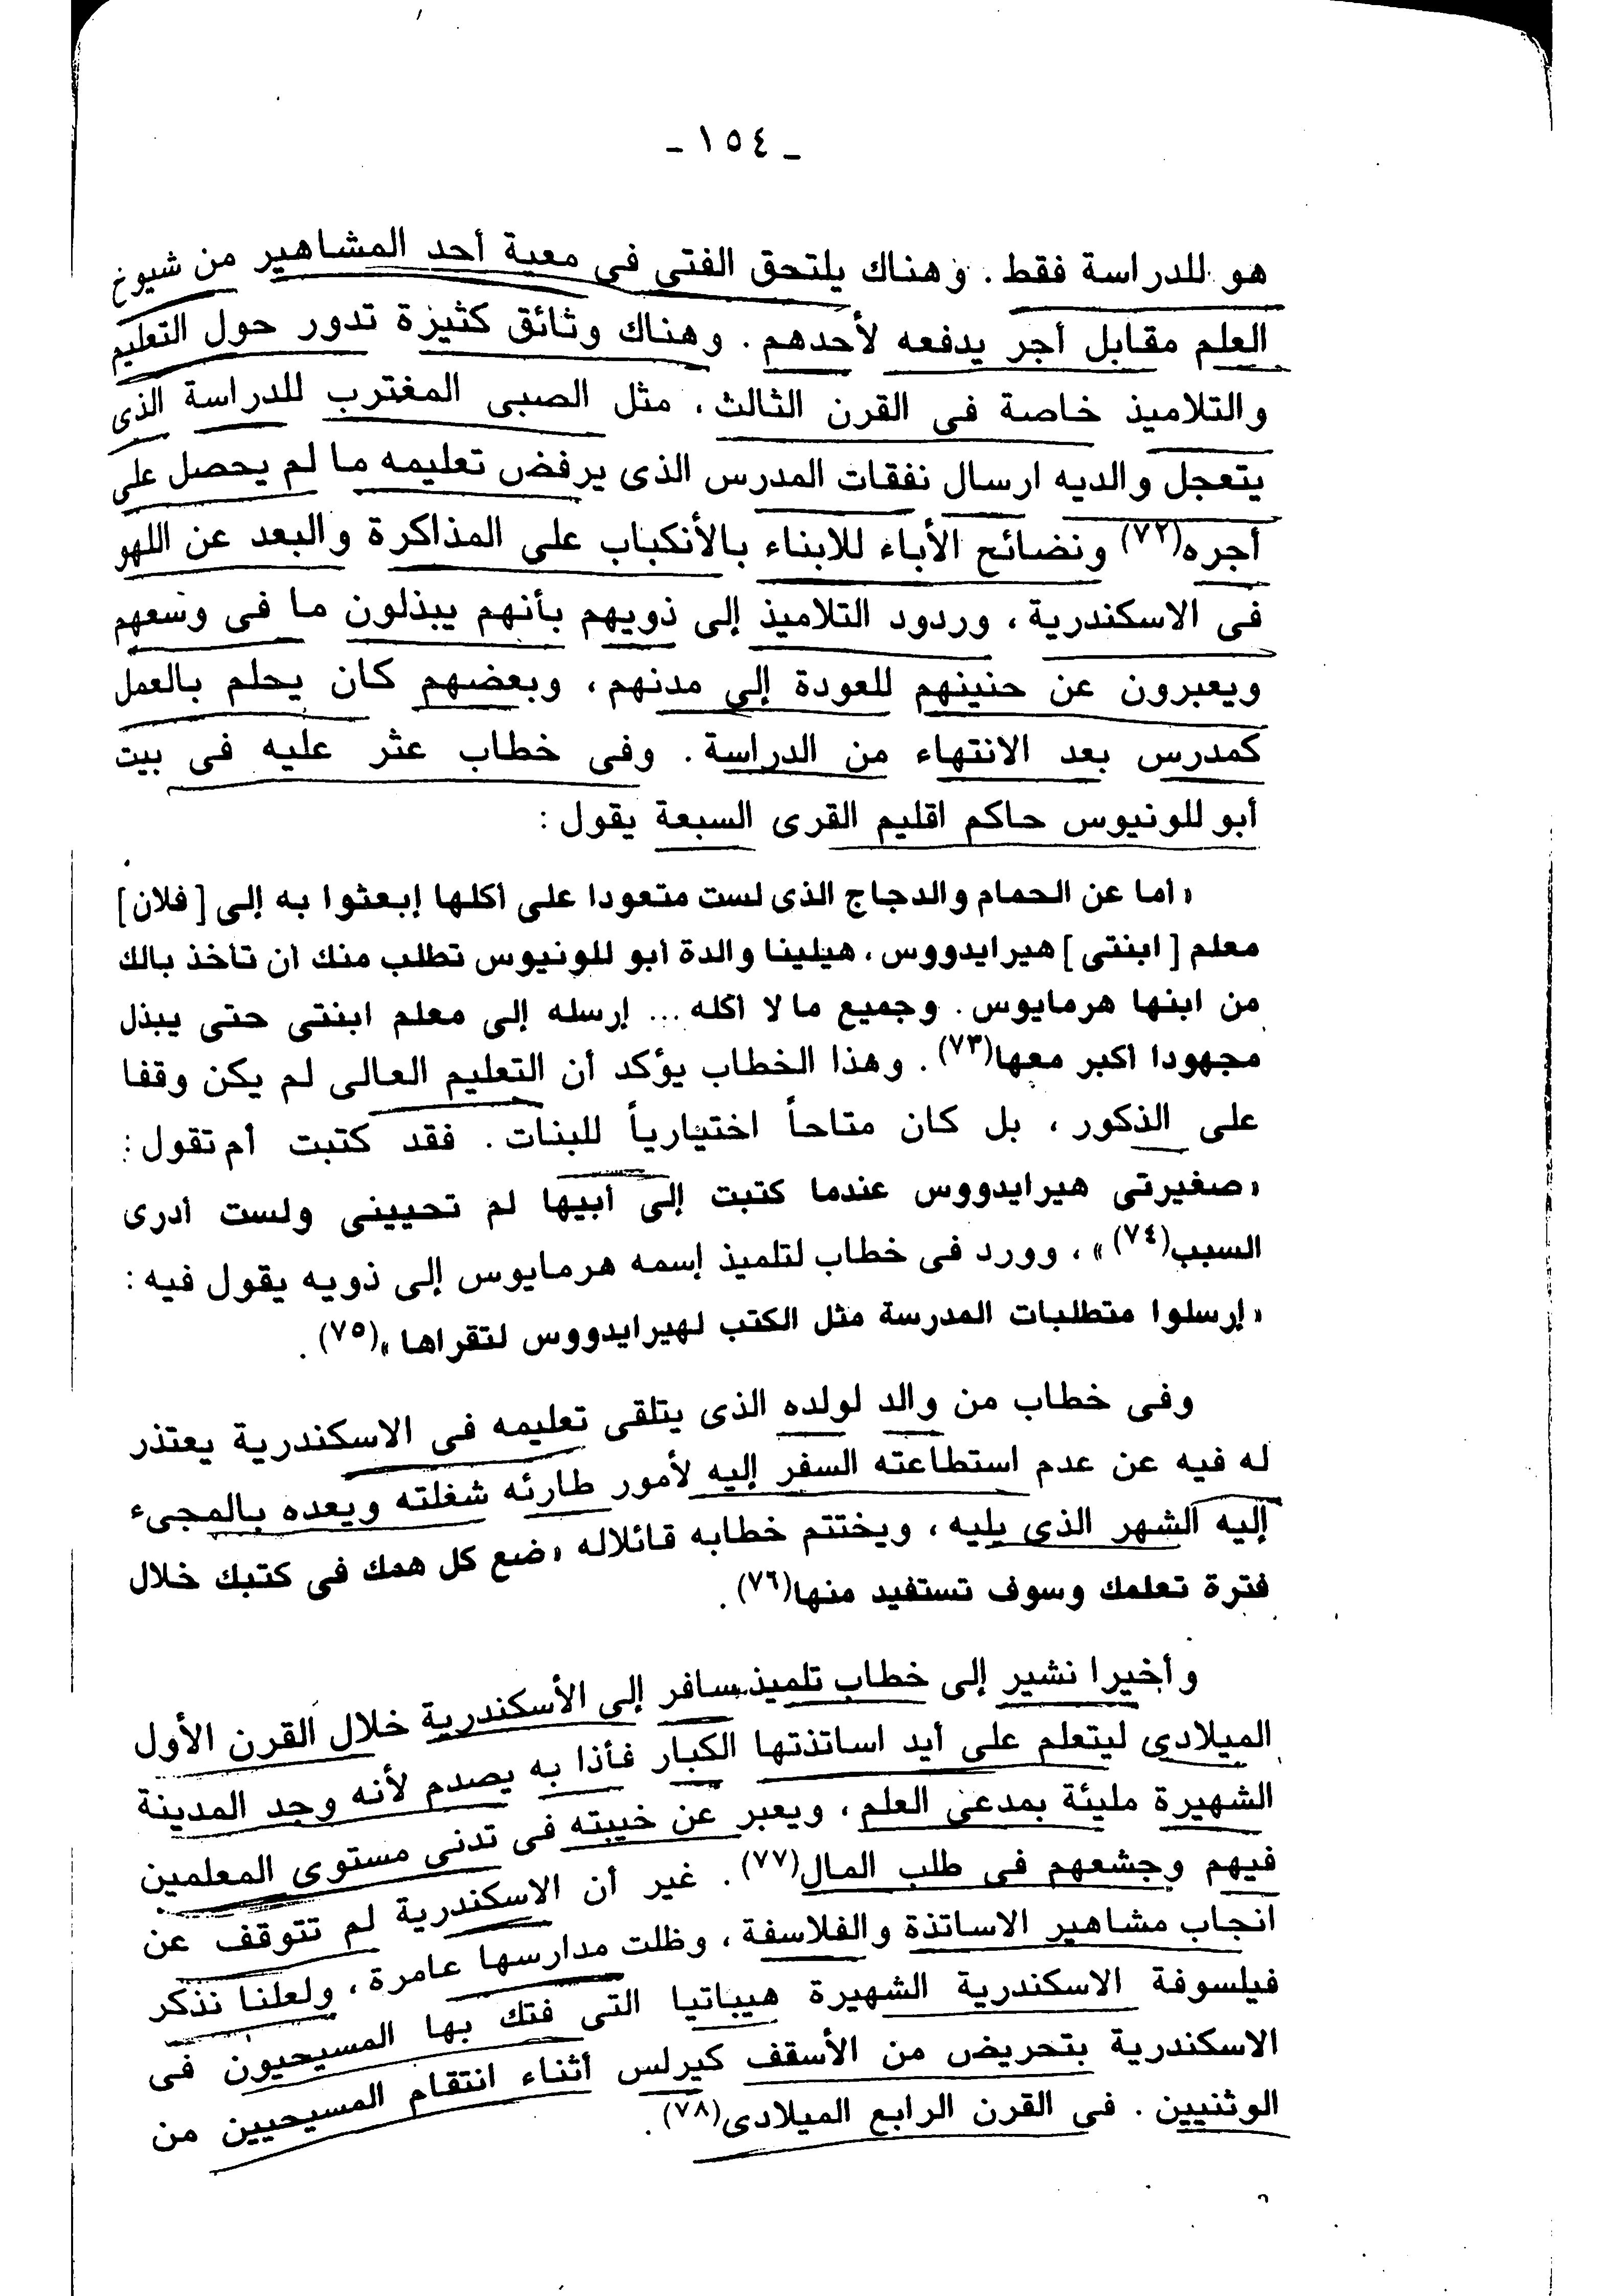 ـ ١٥٤ ـ
هو للدراسة فقط . وهناك يلتحق الفتى فى معية أحد المشاهير من شيوخ
العلم مقابل أجر يدفعه لأحدهم . وهناك وثائق كثيرة تدور حول التعليم
والتلاميذ خاصة فى القرن الثالث ، مثل الصبى المغترب للدراسة الذى
يتعجل والديه ارسال نفقات المدرس الذى يرفض تعليمه ما لم يحصل على
أجره(٧٢) ونصائح الأباء للابناء بالأنكباب على المذاكرة والبعد عن اللهو
فى الاسكندرية ، وردود التلاميذ إلى ذويهم بأنهم يبذلون ما فى وسعهم
ويعبرون عن حنينهم للعودة إلى مدنهم ، وبعضهم كان يحلم بالعمل
كمدرس بعد الانتهاء من الدراسة . وفى خطاب عثر عليه فى بيت
أبو للونيوس حاكم اقليم القرى السبعة يقول :
« أما عن الحمام والدجاج الذى لست متعودا على أكلها إبعثوا به إلى [ فلان ]
معلم [ ابنتى ] هيرايدووس ، هيلينا والدة أبو للونيوس تطلب منك أن تأخذ بالك
من ابنها هرمايوس . وجميع ما لا أكله ... إرسله إلى معلم ابنتى حتى يبذل
مجهودا أكبر معها(٧٣) . وهذا الخطاب يؤكد أن التعليم العالى لم يكن وقفا
على الذكور ، بل كان متاحاً اختيارياً للبنات . فقد كتبت أم تقول :
« صغيرتى هيرايدووس عندما كتبت إلى أبيها لم تحيينى ولست أدرى
السبب(٧٤) » ، وورد فى خطاب لتلميذ إسمه هرمايوس إلى ذويه يقول فيه :
« إرسلوا متطلبات المدرسة مثل الكتب لهيرايدووس لتقراها »(٧٥) .
وفى خطاب من والد لولده الذى يتلقى تعليمه فى الاسكندرية يعتذر
له فيه عن عدم استطاعته السفر إليه لأمور طارئه شغلته ويعده بالمجىء
إليه الشهر الذى يليه ، ويختتم خطابه قائلاله « ضع كل همك فى كتبك خلال
فترة تعلمك وسوف تستفيد منها(٧٦) .
وأخيرا نشير إلى خطاب تلميذ سافر إلى الأسكندرية خلال القرن الأول
الميلادى ليتعلم على أيد اساتذتها الكبار فأذا به يصدم لأنه وجد المدينة
الشهيرة مليئة بمدعى العلم ، ويعبر عن خيبته فى تدنى مستوى المعلمين
فيهم وجشعهم فى طلب المال(٧٧) . غير أن الاسكندرية لم تتوقف عن
انجاب مشاهير الاساتذة والفلاسفة ، وظلت مدارسها عامرة ، ولعلنا نذكر
فيلسوفة الاسكندرية الشهيرة هيباتيا التى فتك بها المسيحيون فى
الاسكندرية بتحريض من الأسقف كيرلس أثناء انتقام المسيحيين من
الوثنيين . فى القرن الرابع الميلادى(٧٨) .